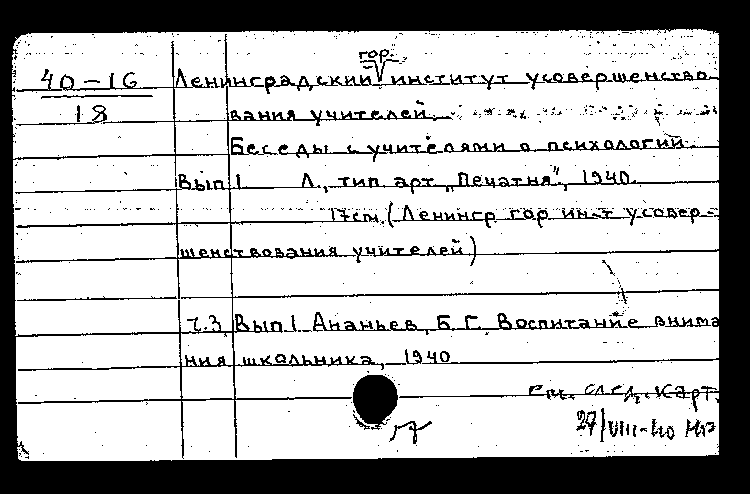 гор.
40-16 Ленинградский институт усовершенство-
18 вания учителей.
Беседы с учителями о психологии.
Вып 1 Л., тип. арт. „Печатня", 1940.
17 cm. (Ленингр гор. ин-т усовер-
шенствования учителей)
7.3 Вып 1. Ананьев, Б. Г. Воспитание внима
ния школьника, 1940
См. след. карт.
17 27/VIII-40